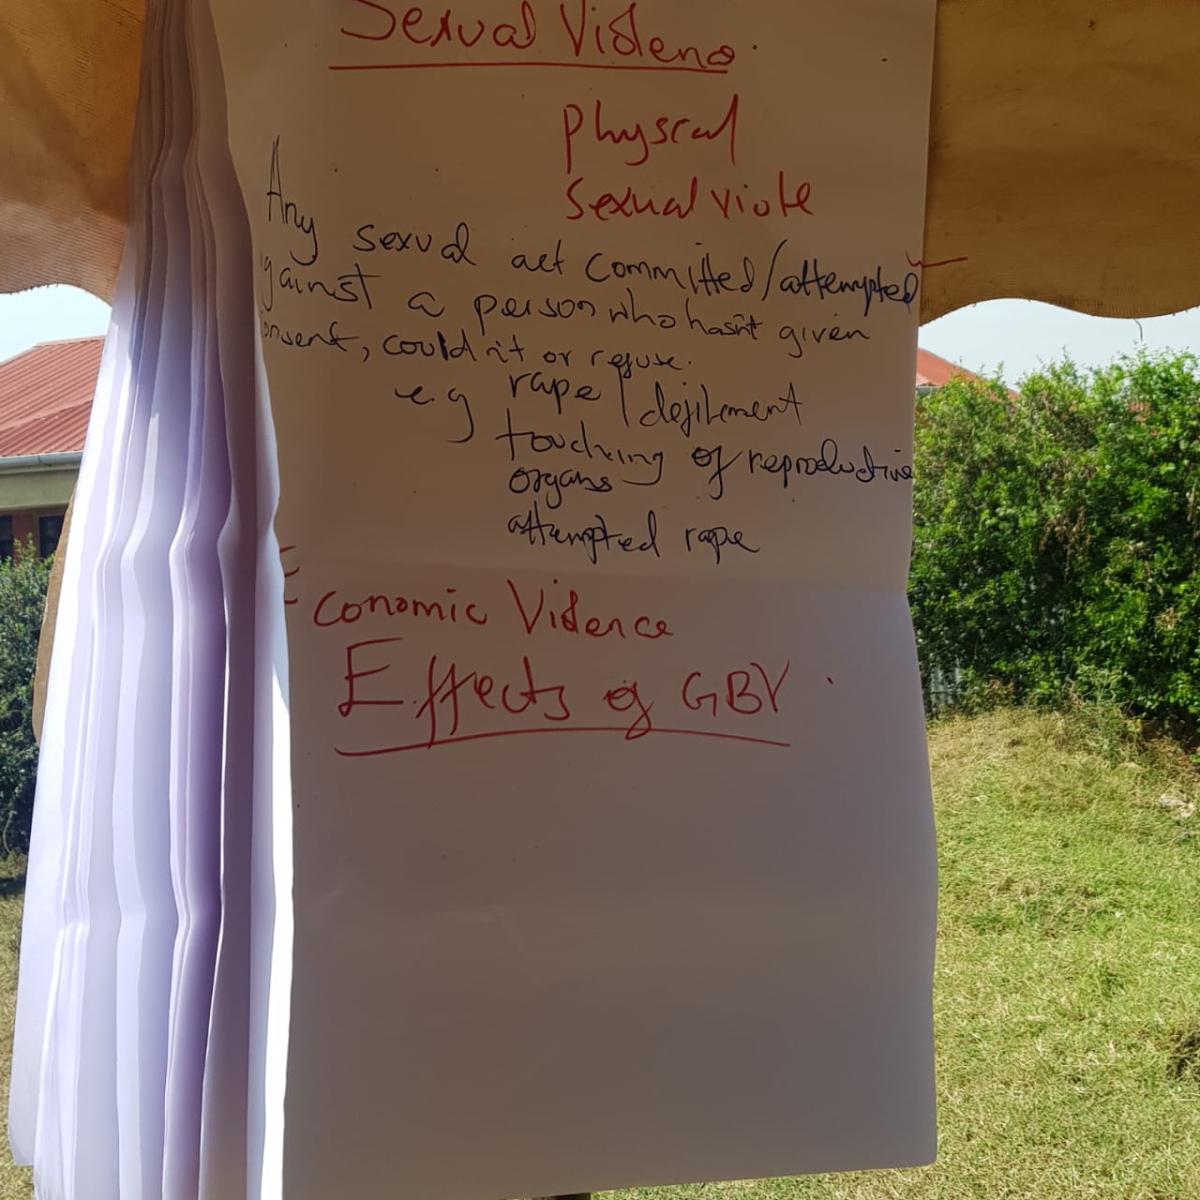 Sexual Violence
physcal
sexual viole
Any sexual act committed/attempted
against a person who hasn't given
onsent, could it or refuse.
e.g rape / defilement
touching of reproductive
organs
attempted rape
Economic Violence
Effects of GBV